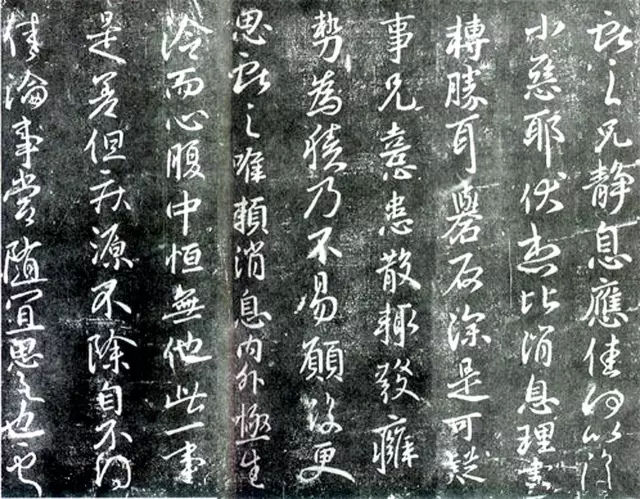 獻之兄靜息應佳何以復
小惡耶伏想比消息理盡
轉勝耳礜石深是可疑
事兄憙患散輒發癰
勢為積乃不易願復更
思獻之唯賴消息內外極生
冷而心腹中恒無他此一事
是差但疾源不除自不得
佳論事當隨宜思之也